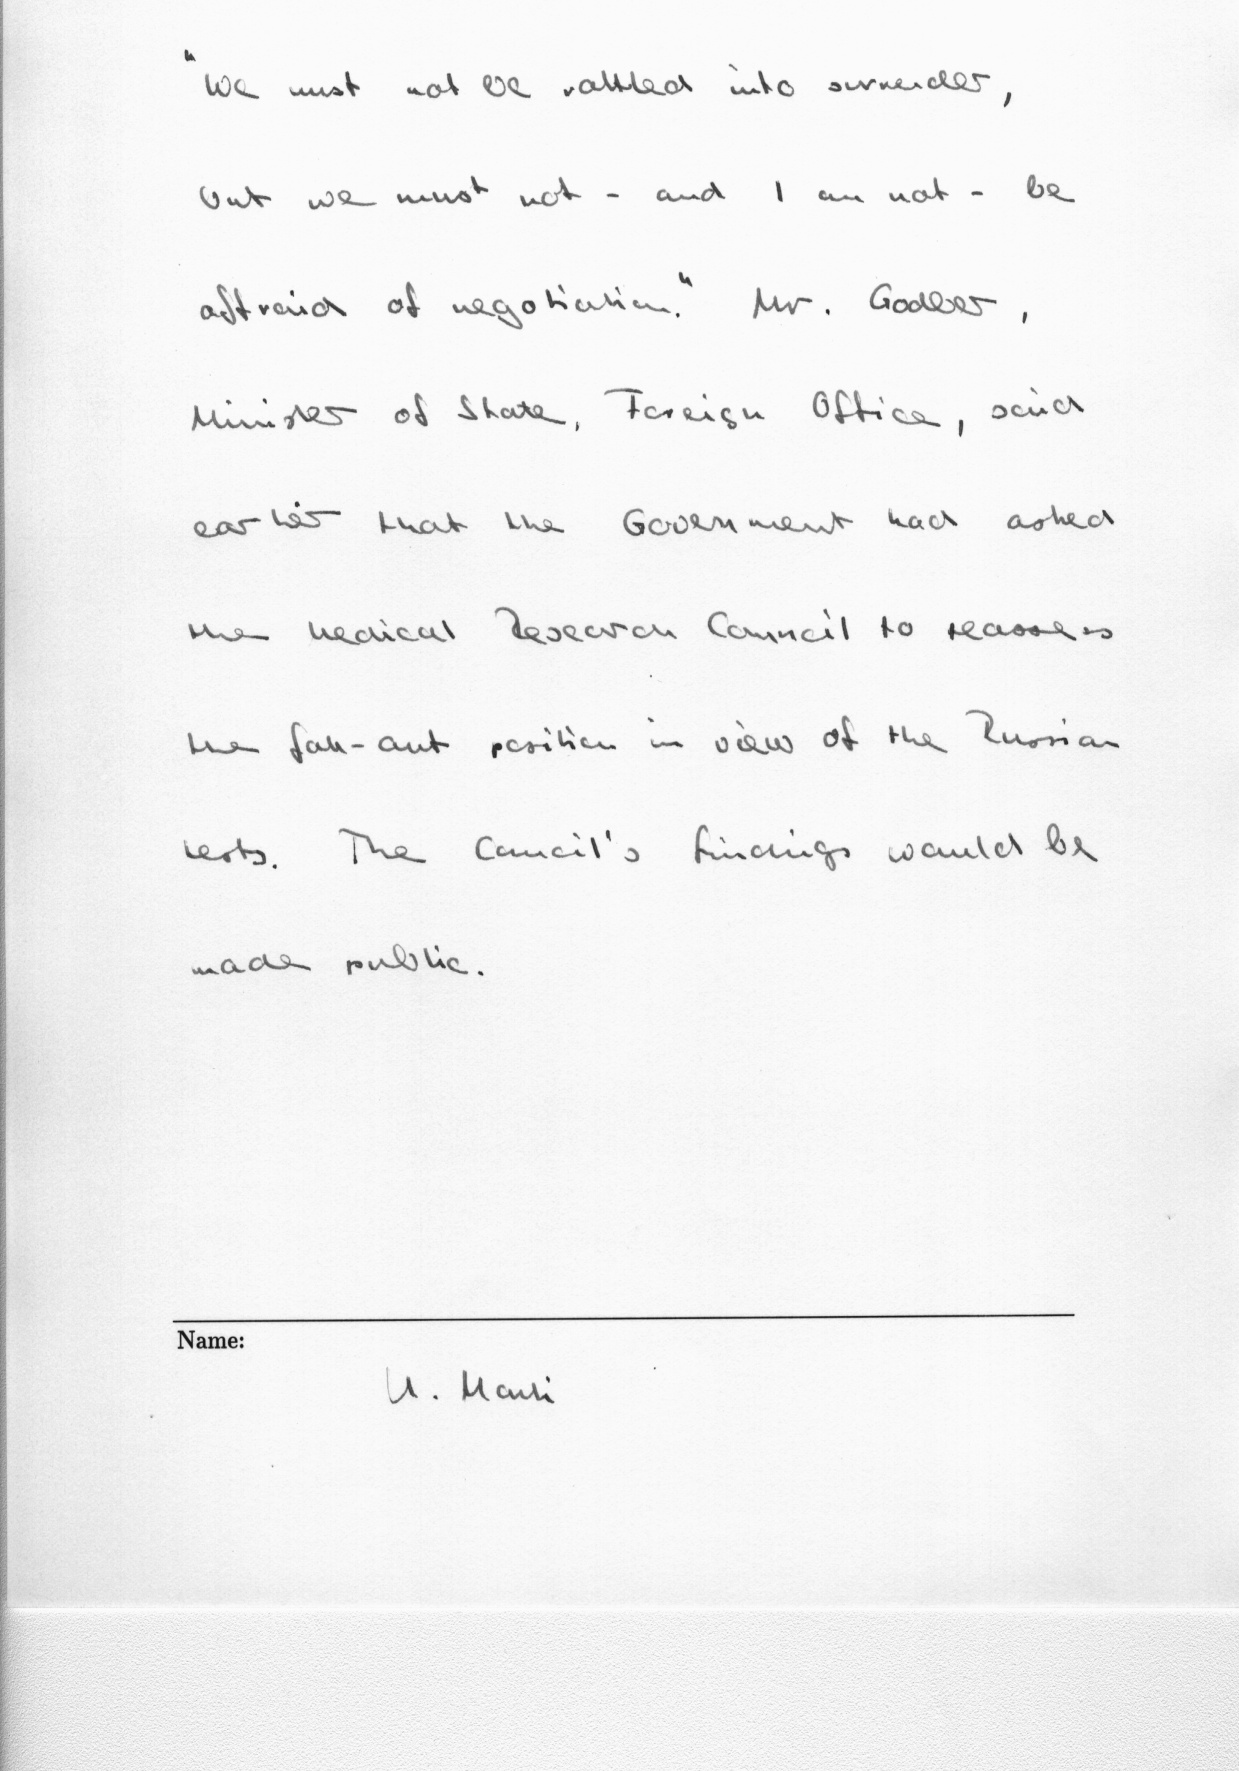 "We must not be rattled into surrender,
but we must not - and I am not - be
afraid of negotiation." Mr. Godber,
Minister of State, Foreign Office, said
earlier that the Government had asked
the Medical Research Council to reassess
the fall-out position in view of the Russian
tests. The Council's findings would be
made public.
Name:
U. Marti